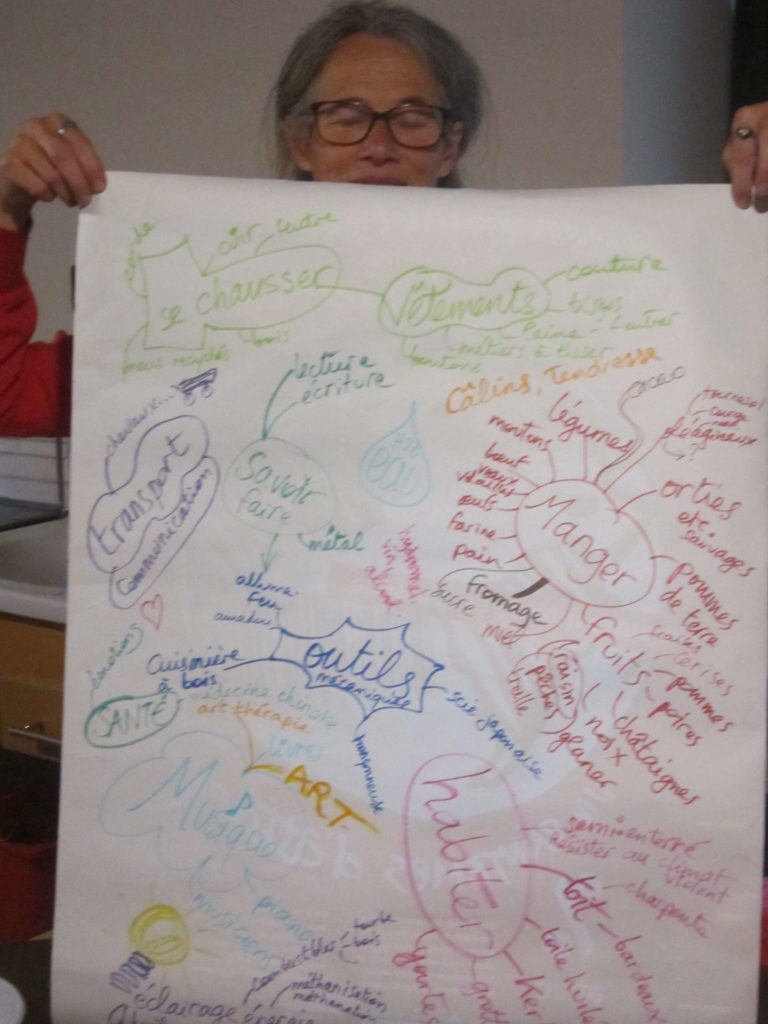 cuir
feutre
se chausser
Vêtements
couture
laine - feutrer
métiers à tisser
boutons
pneus recyclés
bois
lecture
écriture
Câlins, Tendresse
cacao
tournesol
oléagineux
?
chevaux...
transport
communication
savoir
faire
métal
H2O
eau
légumes
moutons
bœuf
veaux
volailles
œufs
farine
pain
fromage
miel
Manger
orties
etc.
sauvages
pommes
de terre
fruits
fraises
cerises
pommes
poires
raisin
pêches
châtaignes
noix
glaner
hydromel
vin
alcool
allume-
feu
amadou
outils
mécaniques
Cuisinière
à bois
scie japonaise
tronçonneuse
émotions
SANTÉ
médecine chinoise
art thérapie
LIVRES
ART
Musique
piano
musiciens
habiter
semi enterré
résister au climat
violent
toit
charpente
bardeaux
Ker
yourtes
combustibles
tourbe
bois
méthanisation
éclairage
énergie